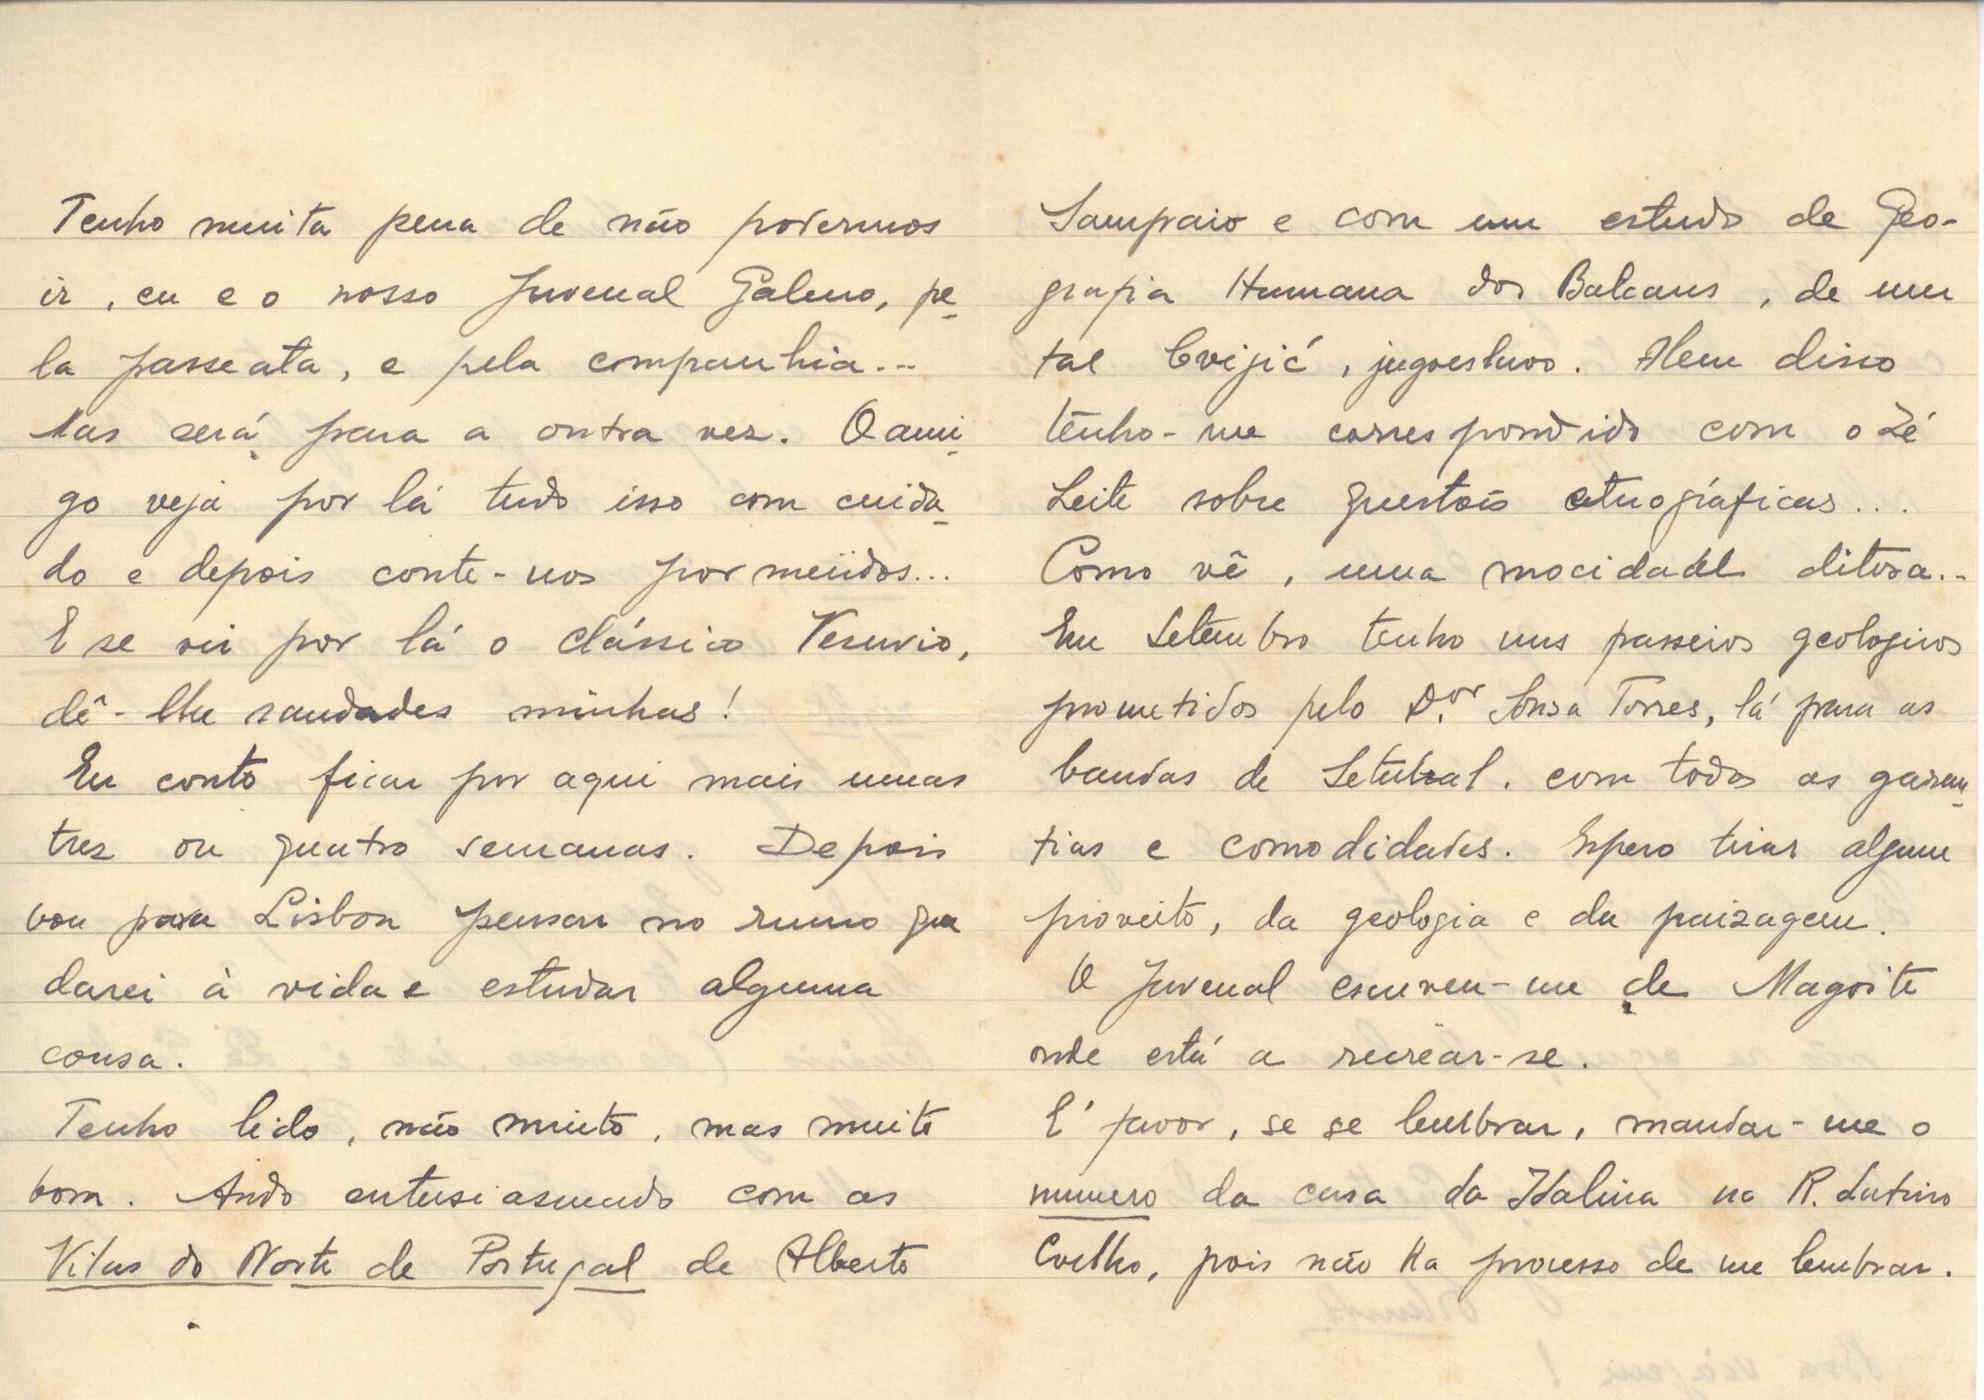 Tenho muita pena de não podermos
ir, eu e o nosso Juvenal Galeno, pe-
la passeata, e pela companhia...
Mas será para a outra vez. O ami-
go veja por lá tudo isso com cuida-
do e depois conte-nos por meüdos...
E se vir por lá o clássico Vesuvio,
dê-lhe saudades minhas!
Eu conto ficar por aqui mais umas
tres ou quatro semanas. Depois
vou para Lisboa pensar no rumo que
darei à vida e estudar alguma
cousa.
Tenho lido, não muito, mas muito
bom. Ando entusiasmado com as
Vilas do Norte de Portugal de Alberto
Sampaio e com um estudo de Geo-
grafia Humana dos Balcans, de um
tal Cvijić, jugoeslavo. Alem disso
tenho-me correspondido com o Zé
Leite sobre questões etnográficas...
Como vê, uma mocidade ditosa...
Em Setembro tenho uns passeios geologicos
prometidos pelo D.or Sousa Torres, lá para as
bandas de Setubal, com todas as garan-
tias e comodidades. Espero tirar algum
proveito, da geologia e da paizagem.
O Juvenal escreveu-me de Magoite
onde está a recrear-se.
E' favor, se se lembrar, mandar-me o
numero da casa da Idalina na R. Latino
Coelho, pois não ha processo de me lembrar.